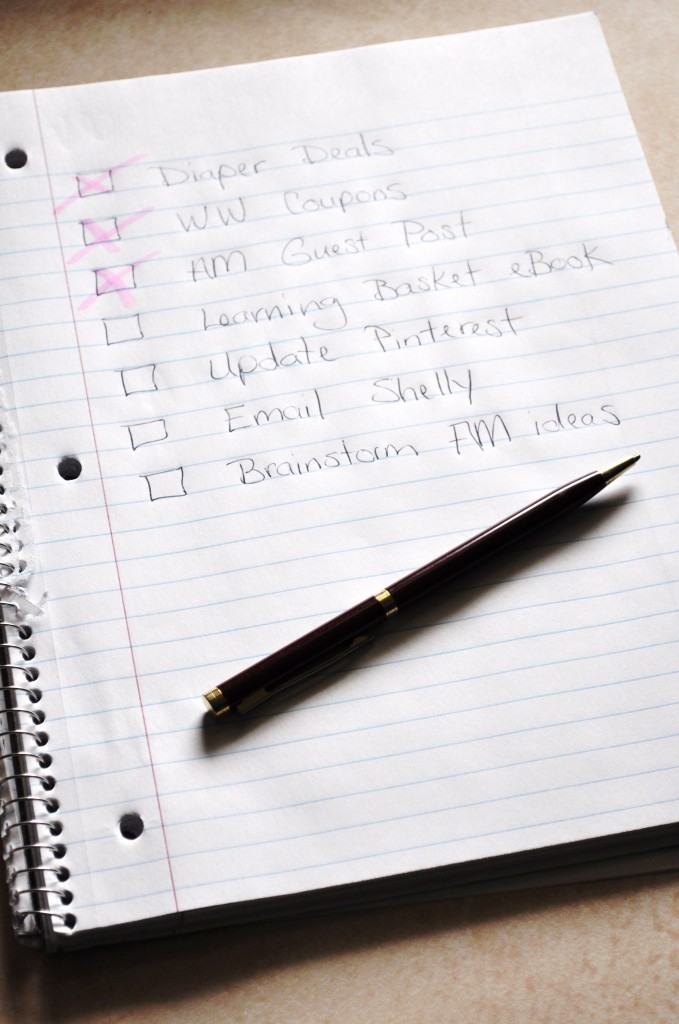 Diaper Deals
WW Coupons
AM Guest Post
Learning Basket eBook
Update Pinterest
Email Shelly
Brainstorm FM ideas